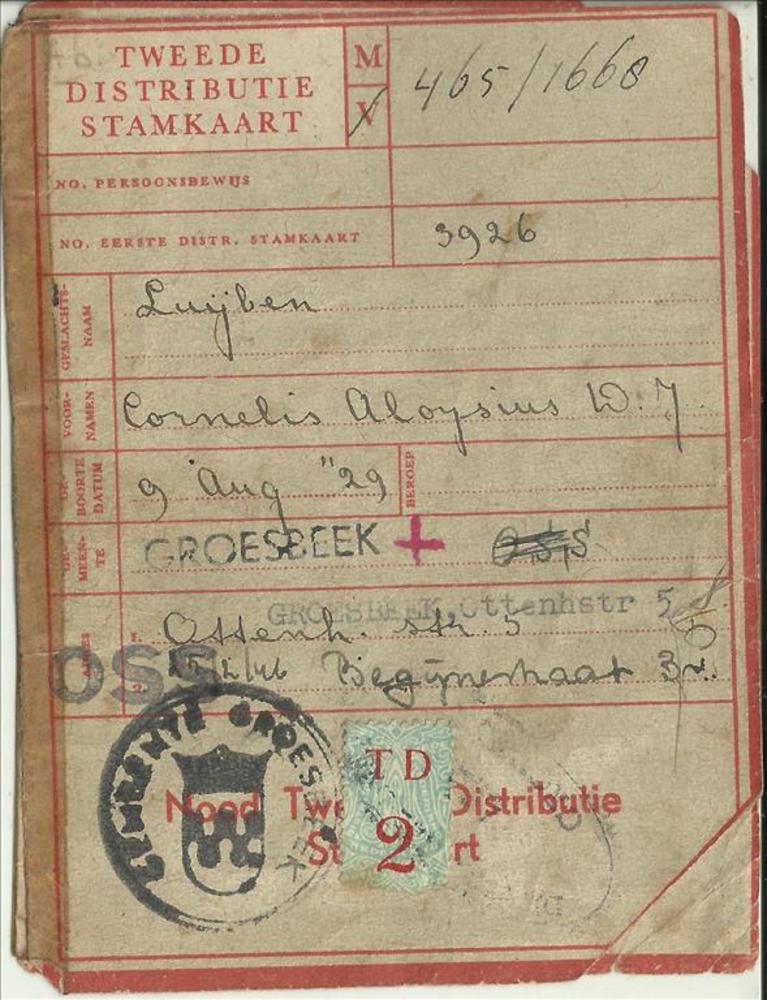 TWEEDE
DISTRIBUTIE
STAMKAART
M
V
465/1668
NO. PERSOONSBEWIJS
NO. EERSTE DISTR. STAMKAART
3926
GESLACHTS-
NAAM
Luijben
VOOR-
NAMEN
Cornelis Aloysius W. J
GE-
BOORTE
DATUM
9 Aug "29
BEROEP
GE-
MEEN-
TE
GROESBEEK + OSS
GROESBEEK, Ottenhstr 5
ADRES
1. Ottenh. str. 5
OSS
2. 25/2/46 Begijnestraat 3
GEMEENTE GROESBEEK
TD
2
Nood Twe Distributie
St rt